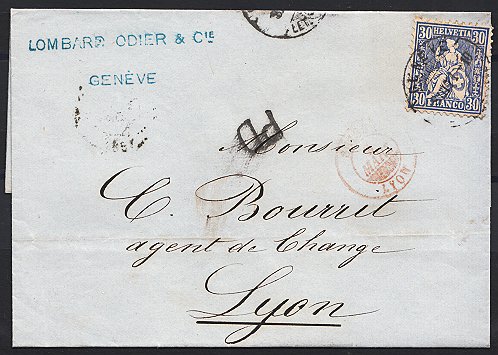 LOMBARD ODIER & CIE
GENÈVE
30 HELVETIA 30
30 FRANCO 30
PD
LYON
Monsieur
C. Bourrit
agent de Change
Lyon